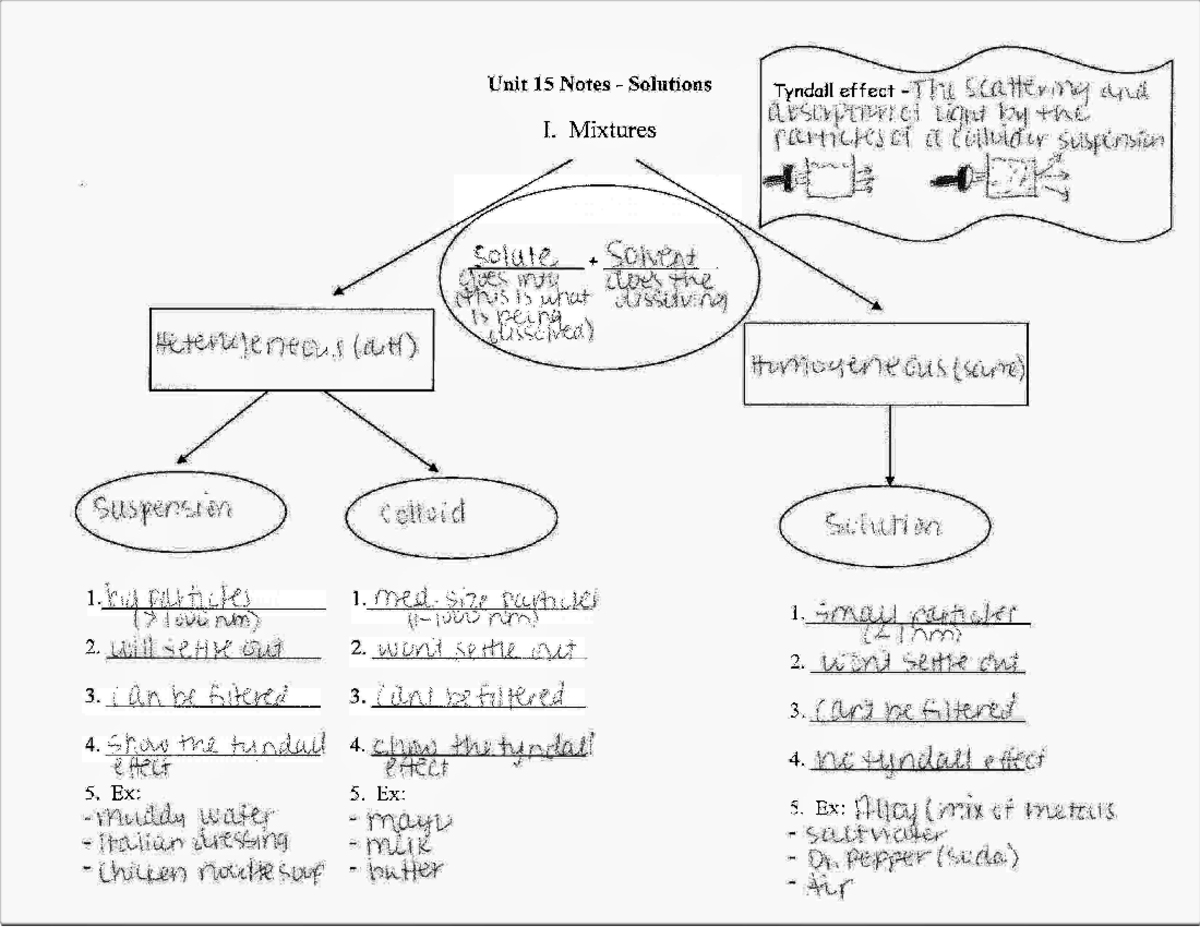 Unit 15 Notes - Solutions
I. Mixtures
Tyndall effect - The scattering and
absorption of light by the
particles of a colloidar suspension
Solute + Solvent
does the
(this is what
dissolving
is being
dissolved)
Heterogeneous (diff)
Homogeneous (same)
Suspension
Colloid
Solution
1. big particles
(>1000 nm)
2. will settle out
3. can be filtered
4. Show the tyndall
effect
5. Ex:
- muddy water
- Italian dressing
- Chicken noodle soup
1. med-size particles
(1-1000 nm)
2. won't settle out
3. cant be filtered
4. show the tyndall
effect
5. Ex:
- mayo
- milk
- butter
1. small particles
(<1nm)
2. won't settle out
3. can't be filtered
4. no tyndall effect
5. Ex: Alloy (mix of metals
- saltwater
- Dr. Pepper (soda)
- Air